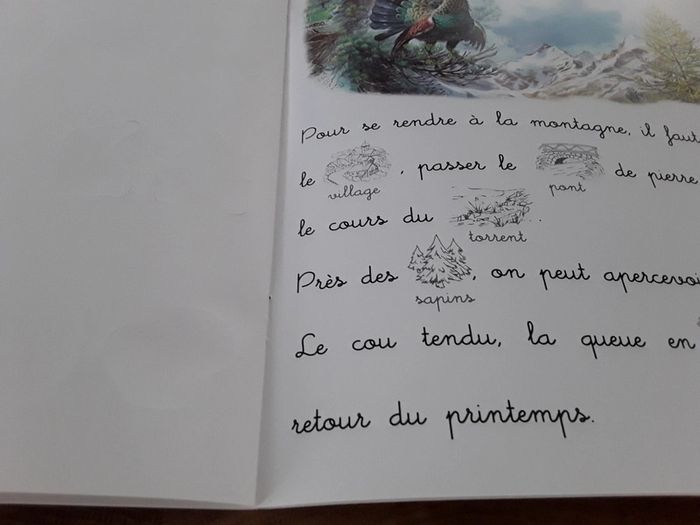 Pour se rendre à la montagne, il faut
le village, passer le pont de pierre
le cours du torrent.
Près des sapins, on peut apercevoi
Le cou tendu, la queue en
retour du printemps.